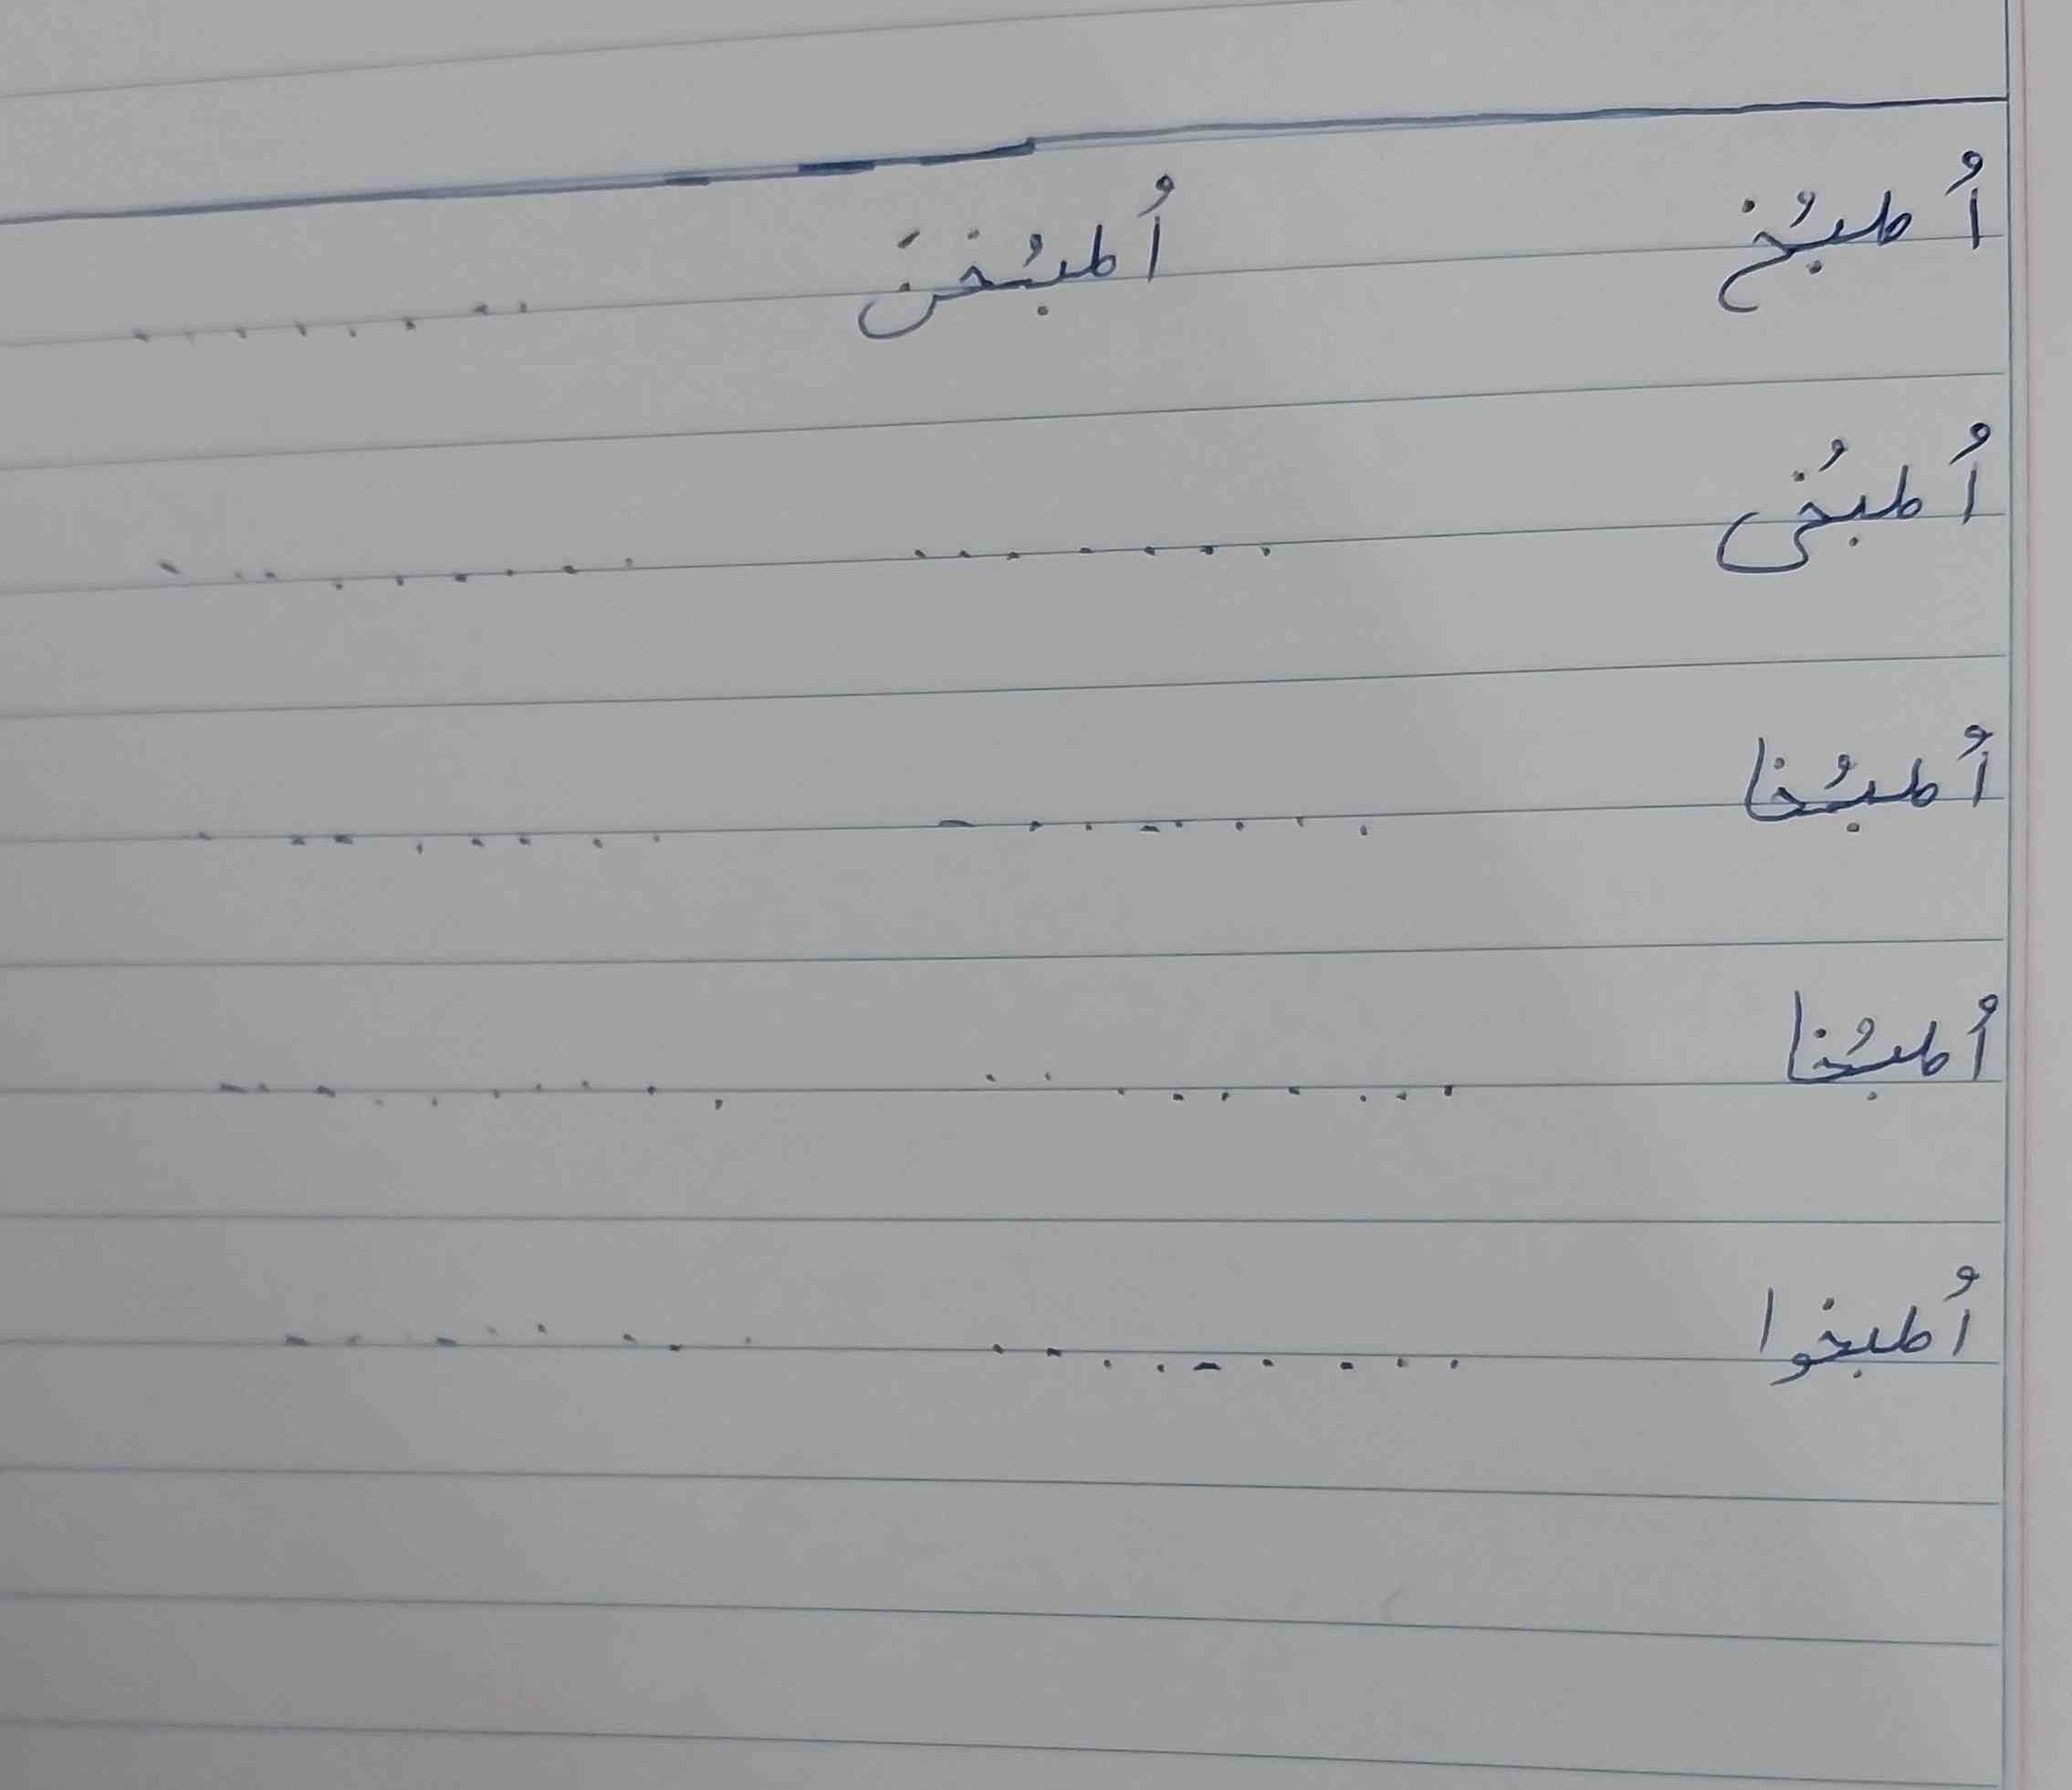 أُطبُخ أُطبُخنَ ........
أُطبُخى ....... .........
أُطبُخا ........ ........
أُطبُخا ......... ..........
أُطبخوا ......... ........